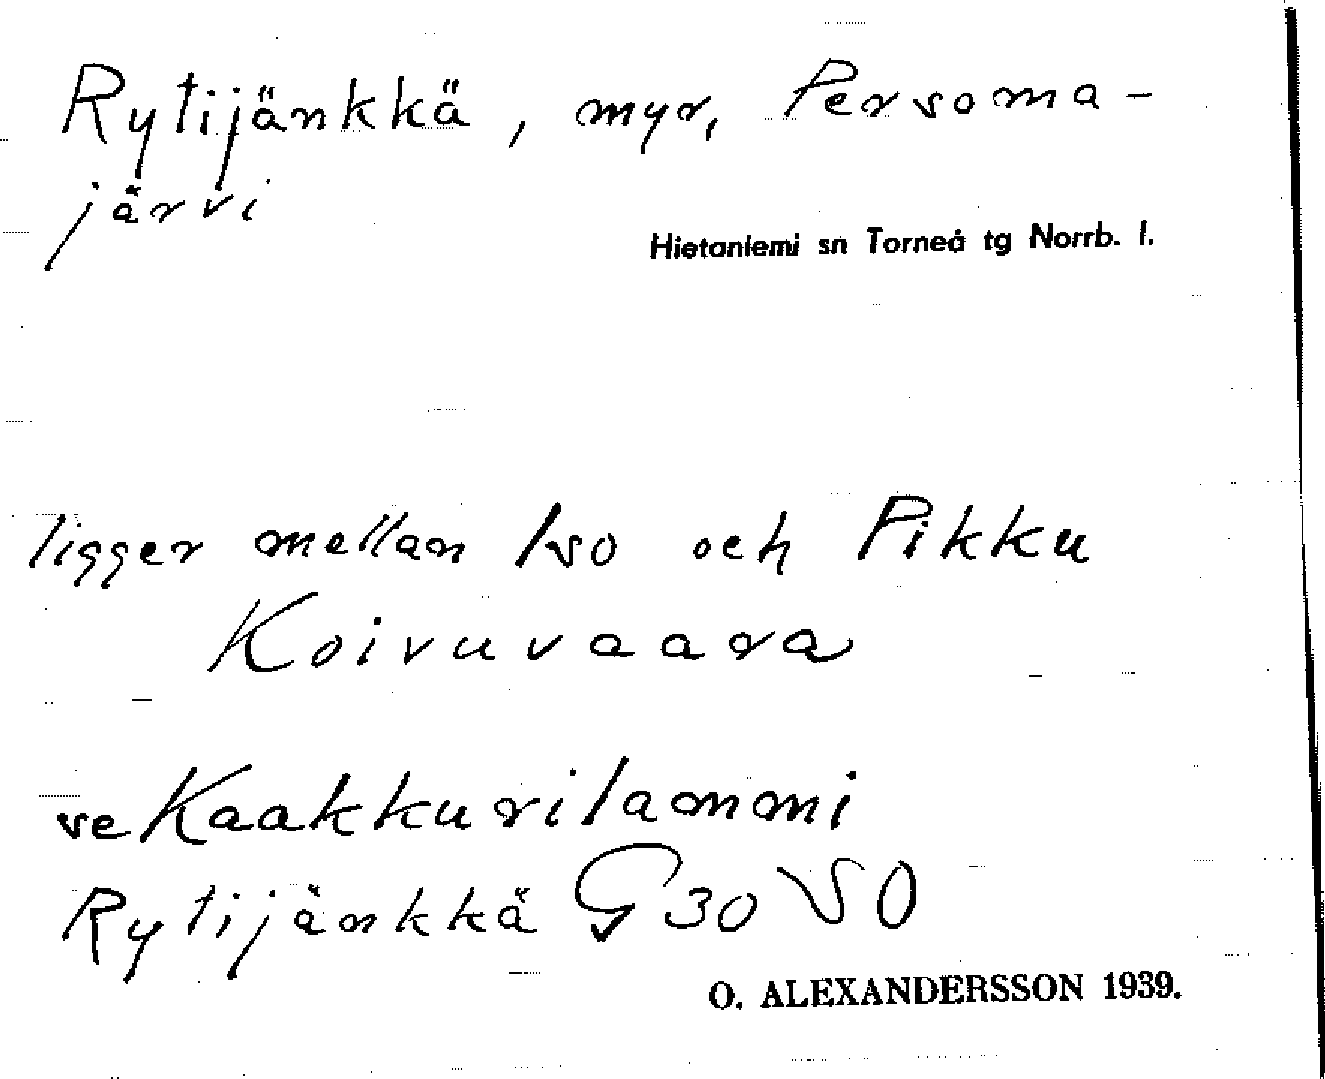 Rytijänkkä, myr, Persoma-
järvi
Hietaniemi sn Torneå tg Norrb. l.
ligger mellan Iso och Pikku
Koivuvaara
se Kaakkurilammi
Rytijänkkä G 30 SO
O. ALEXANDERSSON 1939.